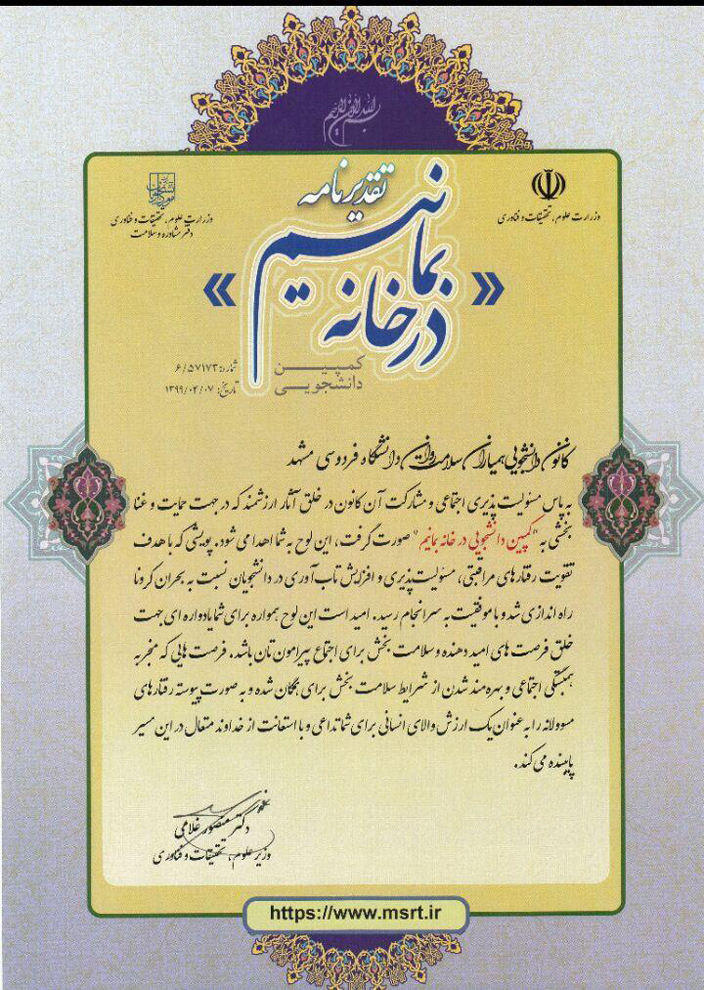 بسم الله الرحمن الرحیم
تقدیرنامه
وزارت علوم، تحقیقات و فناوری
وزارت علوم، تحقیقات و فناوری
دفتر مشاوره و سلامت
« در خانه بمانیم »
کمپین
دانشجویی
شماره: ۶/۵۷۱۷۳
تاریخ: ۱۳۹۹/۰۴/۰۷
کانون دانشجویی همیاران سلامت روان دانشگاه فردوسی مشهد
به پاس مسئولیت پذیری اجتماعی و مشارکت آن کانون در خلق آثار ارزشمند که در جهت حمایت و غنا
بخشی به "کمپین دانشجویی در خانه بمانیم" صورت گرفت، این لوح به شما اهدا می شود. پویشی که با هدف
تقویت رفتارهای مراقبتی، مسئولیت پذیری و افزایش تاب آوری در دانشجویان نسبت به بحران کرونا
راه اندازی شد و با موفقیت به سرانجام رسید. امید است این لوح همواره برای شما یادواره ای جهت
خلق فرصت های امید دهنده و سلامت بخش برای اجتماع پیرامون تان باشد. فرصت هایی که منجر به
همبستگی اجتماعی و بهره مند شدن از شرایط سلامت بخش برای همگان شده و به صورت پیوسته رفتارهای
مسوولانه را به عنوان یک ارزش والای انسانی برای شما تداعی و با استعانت از خداوند متعال در این مسیر
پاینده می کند.
دکتر منصور غلامی
وزیر علوم، تحقیقات و فناوری
https://www.msrt.ir